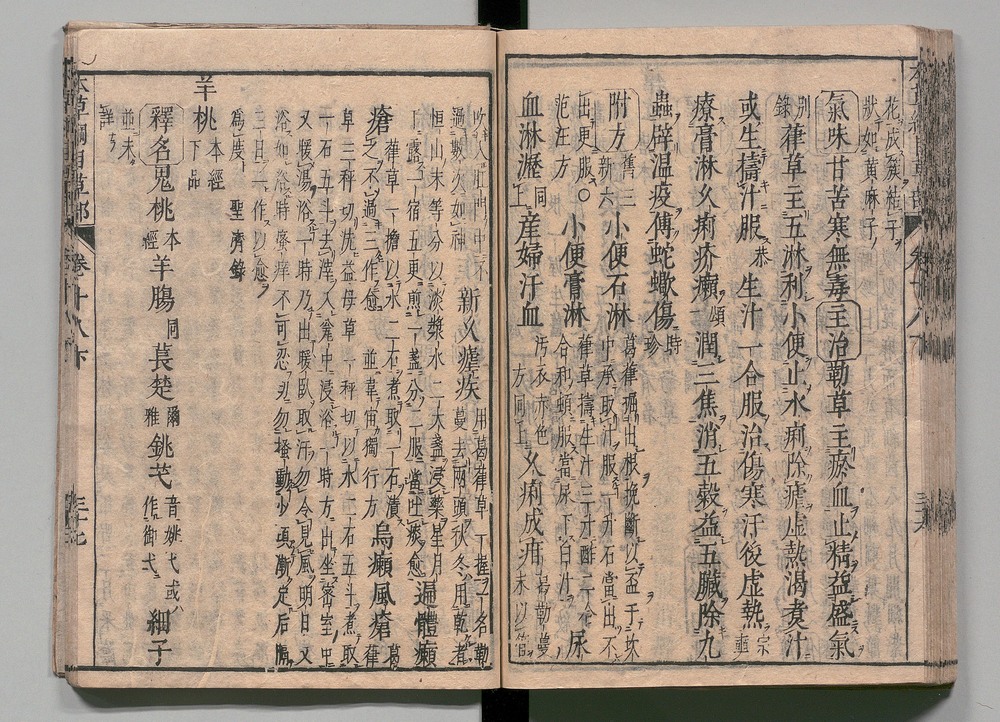 花成簇結子
狀如黃麻子
氣味甘苦寒無毒主治勒草主瘀血止精益盛氣
別錄葎草主五淋利小便止水痢除瘧虛熱渴煮汁
或生擣汁服恭生汁一合服治傷寒汗後虛熱宗奭
療膏淋久痢疥癩頌潤三焦消五穀益五臟除九
蟲辟溫疫傅蛇蠍傷時珍
附方舊三新六小便石淋葛葎掘出根挽斷以盃于坎中承取汁服一升石當出不
出更服〇小便膏淋葎草擣生汁三升酢二合合和頓服當尿下白汁尿
血淋瀝同上產婦汗血汚衣赤色方同上久痢成疳葛勒蔓末以管
吹入肛門中不過數次如神新久瘧疾用葛葎草一握一名勒蔓去兩頭秋冬用乾者
恒山末等分以淡漿水二大盞浸藥星月下露一宿五更煎一盞分二服當吐痰愈遍體癩
瘡葎草一擔以水二石煮取一石漬之不過三作愈並韋宙獨行方烏癩風瘡葛葎
草三秤切洗益母草一秤切以水二石五斗煮取
一石五斗去滓入瓮中浸浴一時方出坐密室中
又暖湯浴一時乃出暖臥取汗勿令見風明日又
浴如浴時瘙痒不可忍切勿搔動少頃漸定后隔
三日一作以愈
爲度聖濟錄
羊桃本經下品
釋名鬼桃本經羊腸同萇楚爾雅銚芅音姚弋或作御弋細子
並未詳
本草綱目草部
卷十八下
三十七